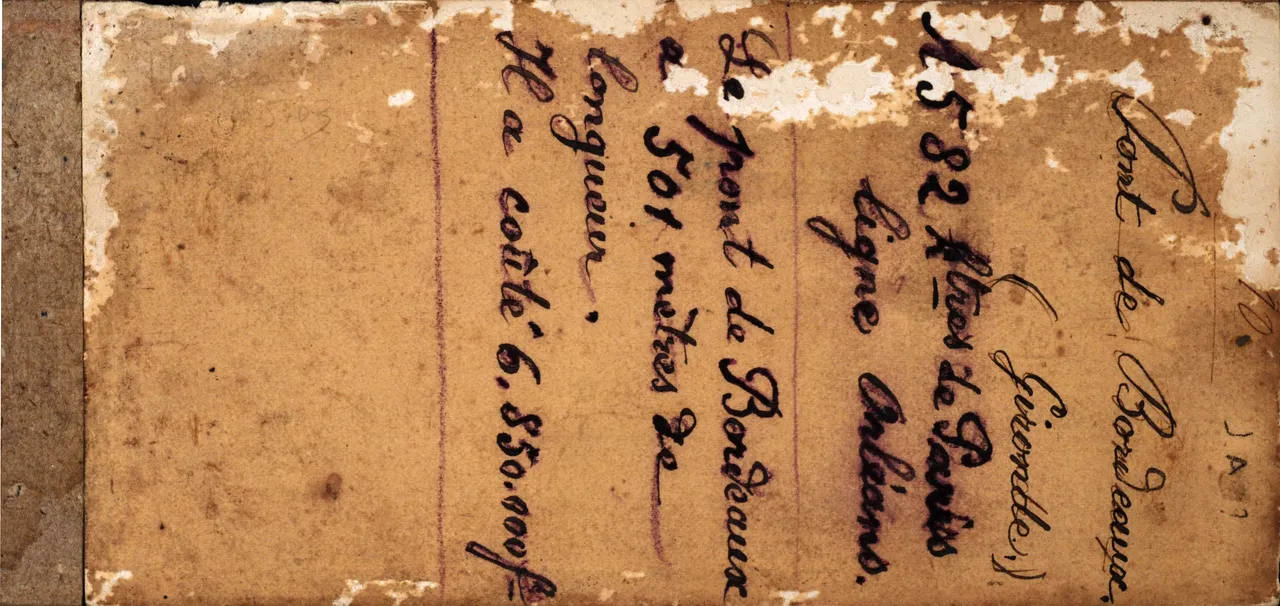 Pont de Bordeaux.
(Gironde.)
A 582 Ktres de Paris
ligne Orléans.
Le pont de Bordeaux
a 501 mètres de
longueur.
Il a coûté 6.850.000f